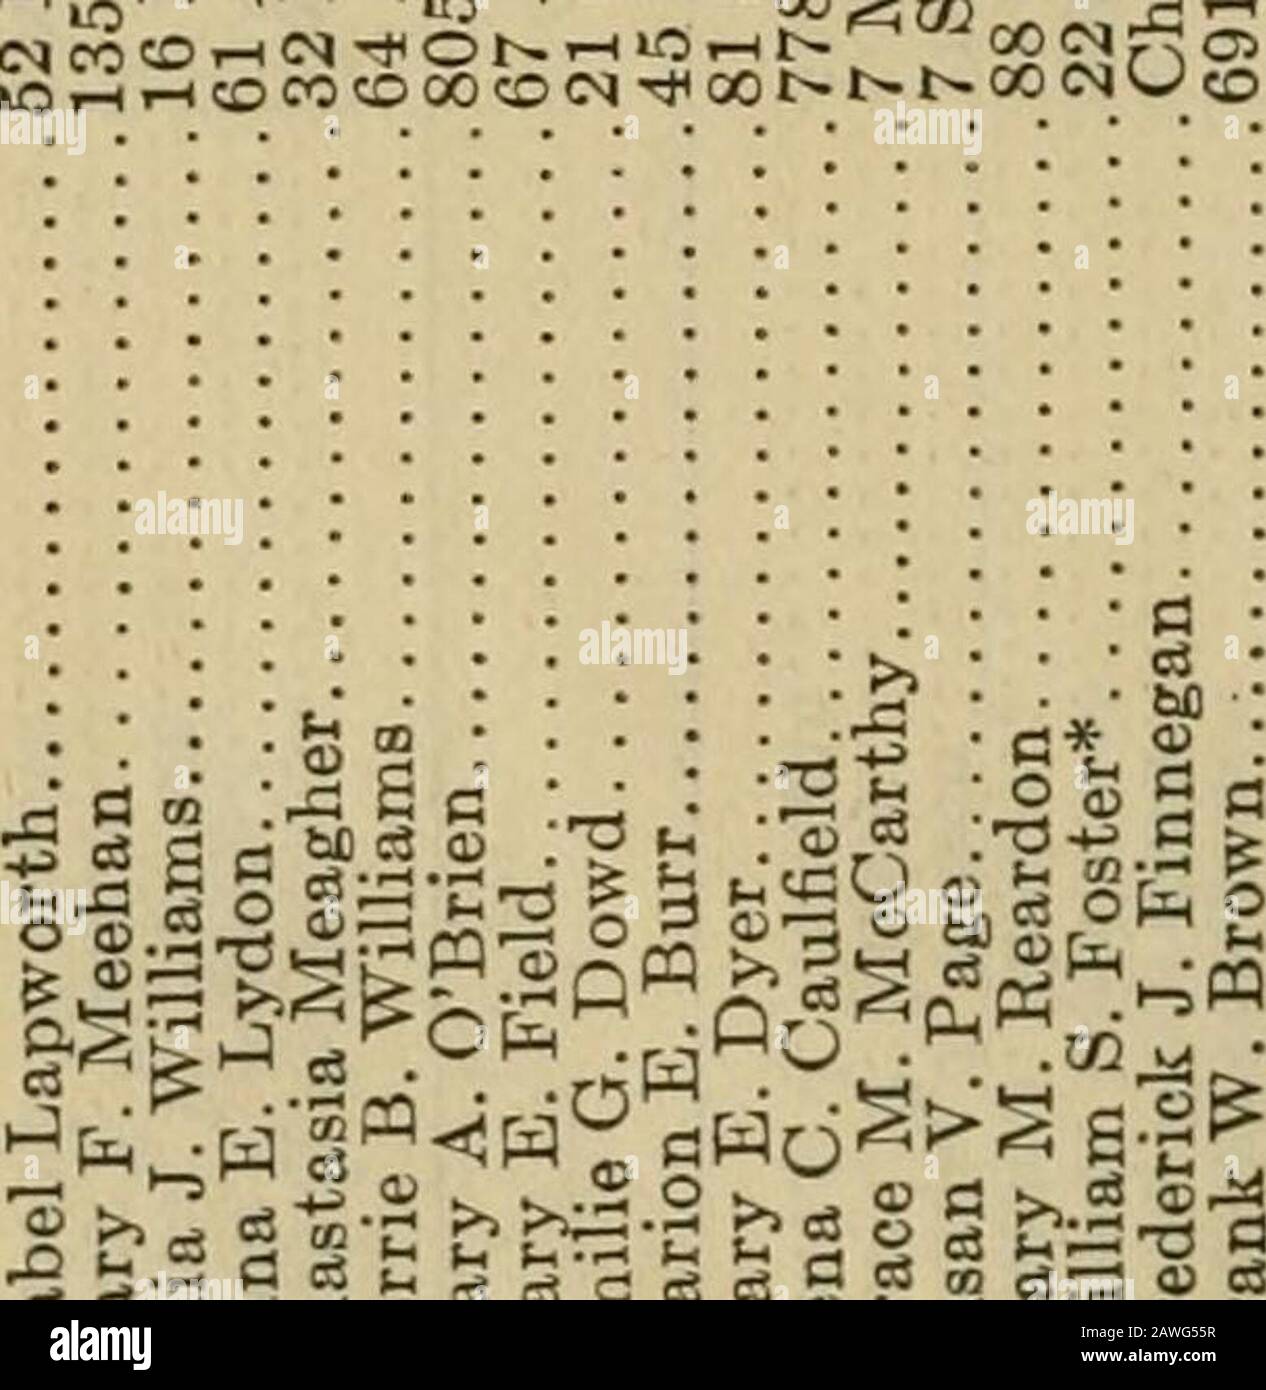 abel Lapworth 52
ary F. Meehan 135
J. Williams 16
na E. Lydon 61
astasia Meagher 32
rrie B. Williams 64
ary A. O'Brien 805
ary E. Field 67
nilie G. Dowd 21
arion E. Burr 45
ary E. Dyer 81
ena C. Caulfield 778
race M. McCarthy 7
san V. Page 7 S
ary M. Reardon 88
illiam S. Foster* 22
ederick J. Finnegan Ch
ank W. Brown 691
alamy
Image ID: 2AWG55R
www.alamy.com